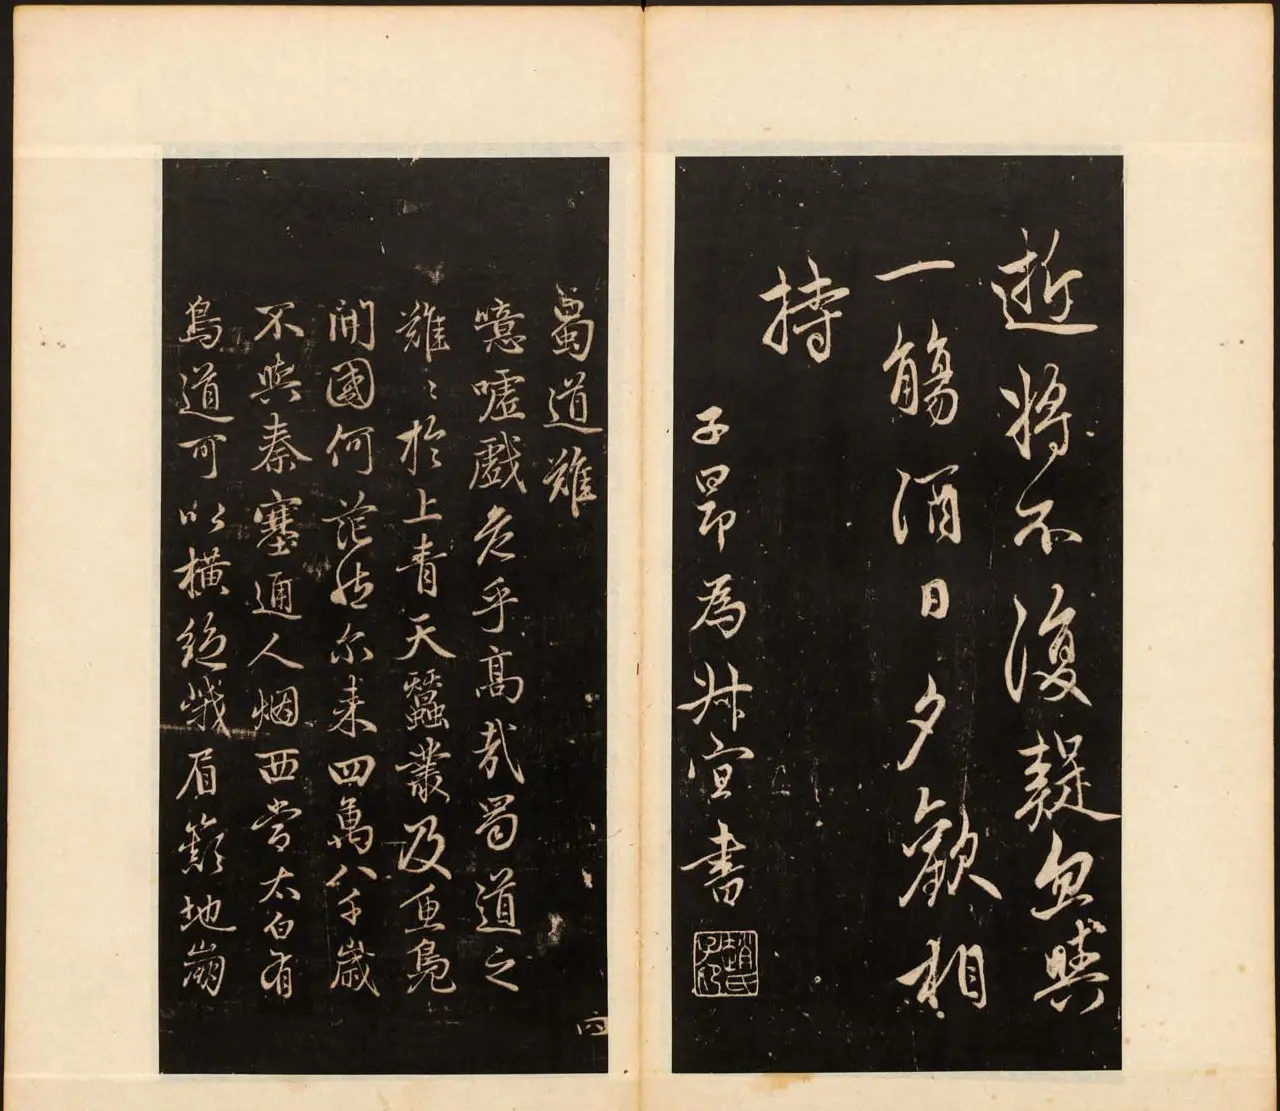 逝将不復疑忽與
一觴酒日夕歡相
持
子昂為叔宣書
趙氏子昂
蜀道難
噫嘘戲危乎高哉蜀道之
難〻於上青天蠶叢及魚鳧
開國何茫然尔来四萬八千歲
不與秦塞通人烟西當太白有
鳥道可以橫絕峨眉巔地崩
四